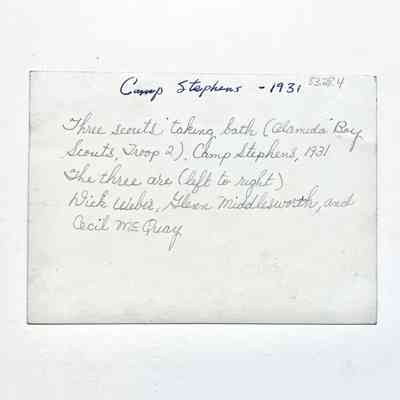 Camp Stephens - 1931 83.28.4
Three scouts taking bath (Alameda Boy
Scouts, Troop 2), Camp Stephens, 1931
The three are (left to right)
Dick Weber, Glenn Middlesworth, and
Cecil McQuay